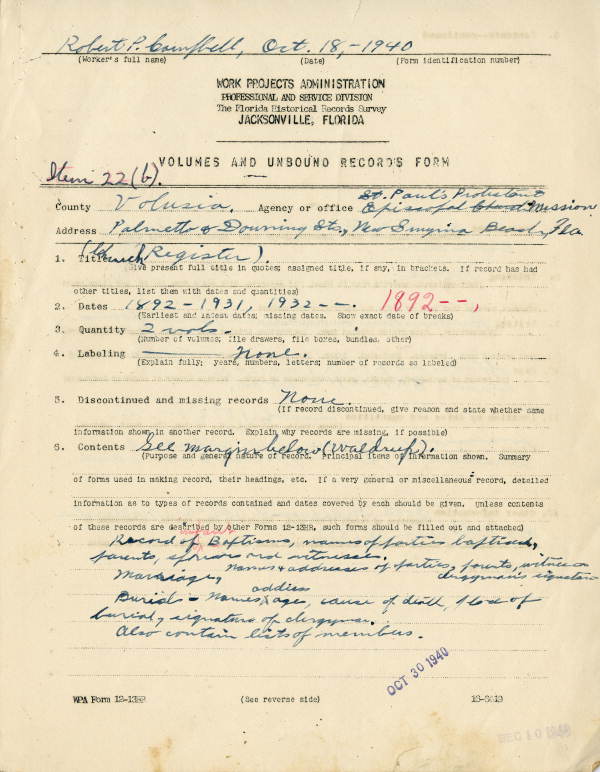 Robert P. Campbell, Oct. 18,-1940
(Worker's full name) (Date) (Form identification number)
WORK PROJECTS ADMINISTRATION
PROFESSIONAL AND SERVICE DIVISION
The Florida Historical Records Survey
JACKSONVILLE, FLORIDA
VOLUMES AND UNBOUND RECORDS FORM
Item 22(b).
St. Paul's Protestant
County Volusia. Agency or office Episcopal Church Mission
Address Palmetto & Downing Sts., New Smyrna Beach, Fla
1. Title (Church Register).
Give present full title in quotes; assigned title, if any, in brackets. If record has had
other titles, list them with dates and quantities)
2. Dates 1892-1931, 1932--. 1892--,
(Earliest and latest dates; missing dates. Show exact date of breaks)
3. Quantity 2 vols.
(Number of volumes, file drawers, file boxes, bundles, other)
4. Labeling none.
(Explain fully; years, numbers, letters; number of records so labeled)
5. Discontinued and missing records None.
(If record discontinued, give reason and state whether same
information shown in another record. Explain why records are missing, if possible)
6. Contents See margin below (Waldrup).
(Purpose and general nature of record. Principal items of information shown. Summary
of forms used in making record, their headings, etc. If a very general or miscellaneous record, detailed
information as to types of records contained and dates covered by each should be given. Unless contents
of these records are described by other Forms 12-13HR, such forms should be filled out and attached)
Record of Baptisms, names of parties baptised,
parents, sponsors and witnesses.
Marriage, names & addresses of parties, parents, witnesses
clergyman's signature
address
Burials - Names, ages, cause of death, place of
burial, signature of clergyman.
Also contain lists of members.
OCT 30 1940
WPA Form 12-13HR (See reverse side) 13-6013
DEC 10 1940